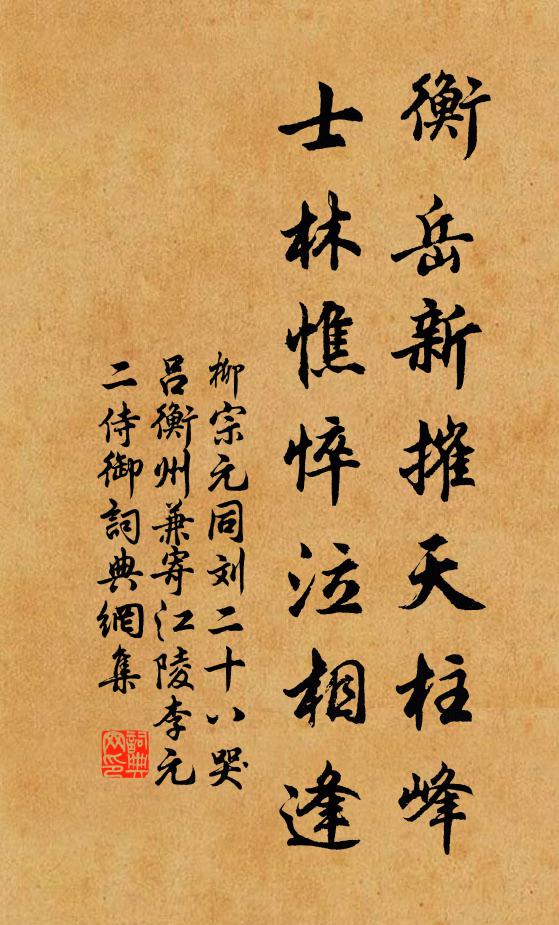 衡岳新摧天柱峰
士林憔悴泣相逢
柳宗元同刘二十八哭
吕衡州兼寄江陵李元
二侍御詞典網集
詞典
网印